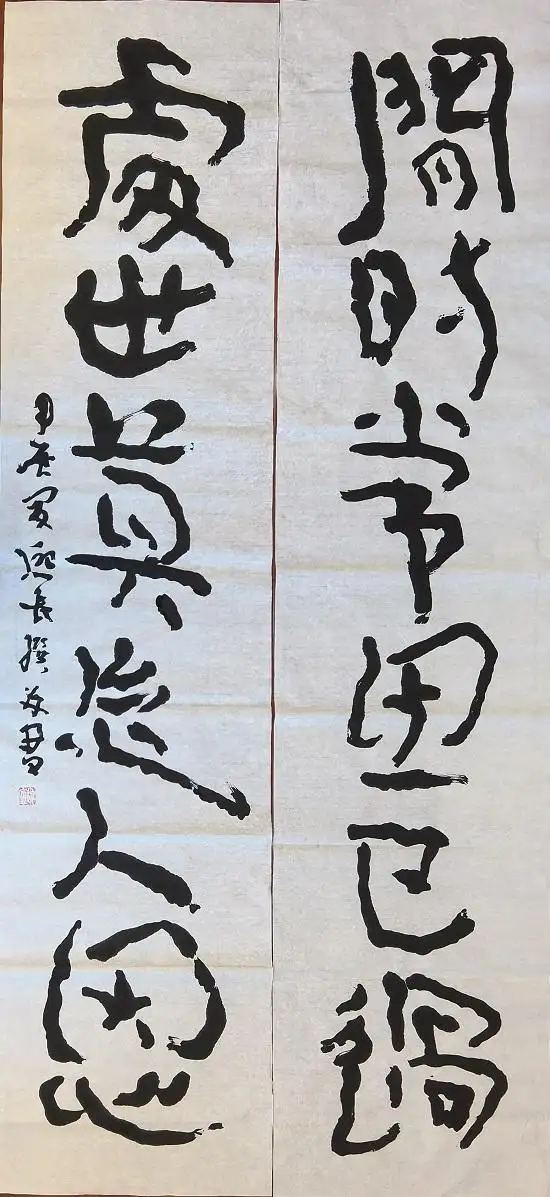 閒時常思己過
處世莫忘人恩
甲辰夏延長撰并書